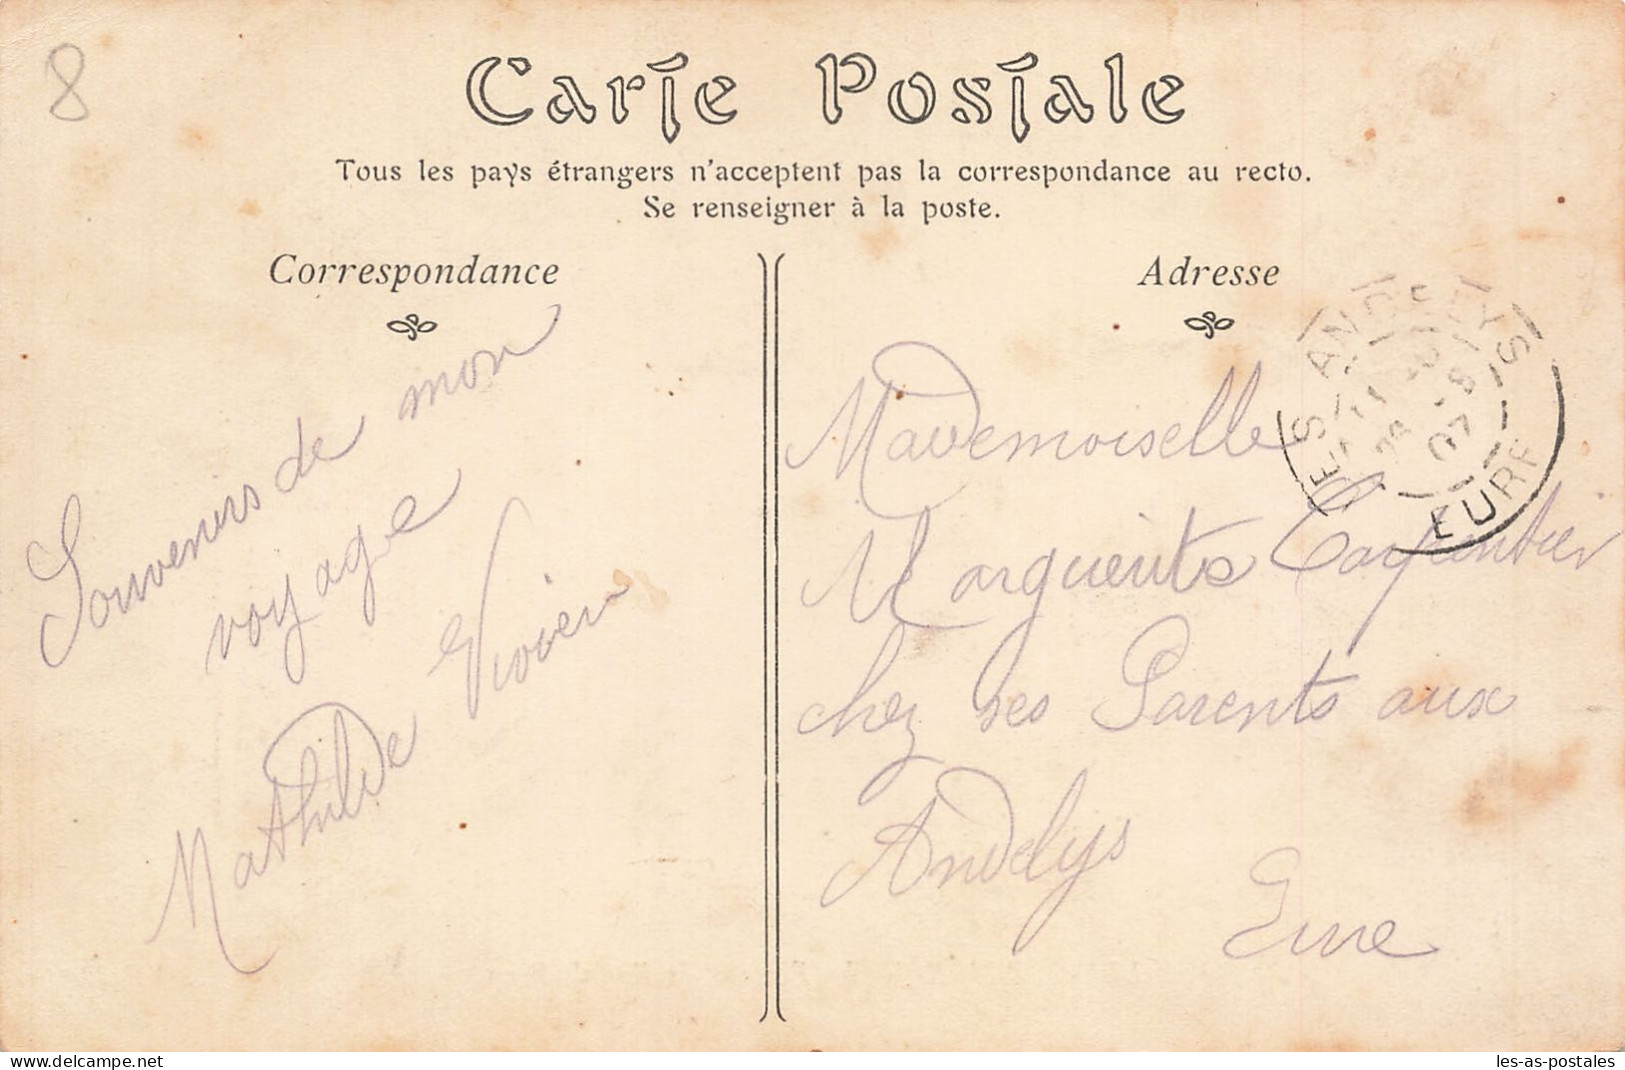 8
Carte Postale
Tous les pays étrangers n'acceptent pas la correspondance au recto.
Se renseigner à la poste.
Correspondance
Souvenirs de mon
voyage
Mathilde Vivien
Adresse
LES ANDELYS
07
EURE
Mademoiselle
Marguerite Carpentier
chez ses Parents aux
Andelys
Eure
delcampe.net
les-as-postales